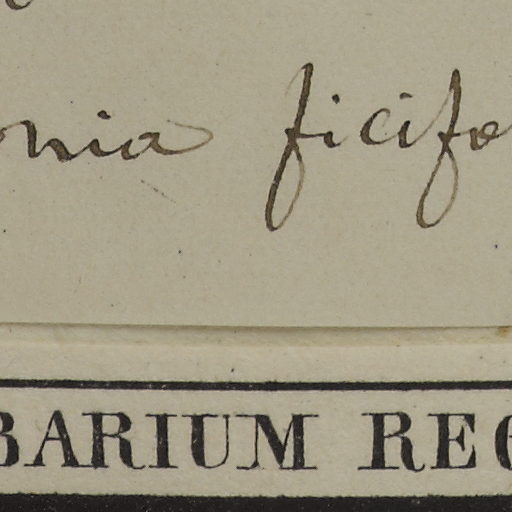 onia ficifo
BARIUM REG